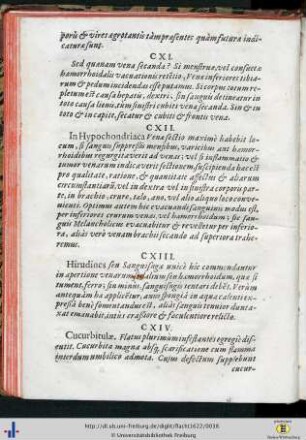 porũ & vires ægrotantũ tàm præsentes quàm futura indi-
catura sunt.
CXI.
Sed quænam vena secanda? Si menstrua, vel consueta
hæmorrhoidalis vacuationis restitio, Venæ inferiores tibia-
rum & pedum incidendæ esse putamus. Si corpus totum re-
pletum est causâ hepatis, dextri, sin sanguis detineatur in
toto causâ lienis, tùm sinistri cubiti vena secanda. Sin & in
toto & in capite, secatur & cubiti & frontis vena.
CXII.
In Hypochondriaca Venæ sectio maximè habebit lo-
cum, si sanguis suppressis mensibus, varicibus aut hæmor-
rhoidibus regurgitaverit ad venas; vel si inflammatio &
tumor venarum indicaverit sectionem, suscipienda hæc est
pro qualitate, ratione, & quantitate affectus & aliarum
circumstantiarũ, vel in dextra vel in sinistra corporis par-
te, in brachio, crure, talo, ano, vel alio aliquo loco conveni-
enti. Optimus autem hoc evacuandi sanguinis modus est,
per inferiores crurum venas, vel hæmorrhoidum: sic san-
guis Melancholicus evacuabitur & revelletur per inferio-
ra, aliàs verò venam brachii secando ad superiora trahe-
remus.
CXIII.
Hirudines seu Sanguisugæ unicè hîc commendantur
in apertione venarum podalium seu hæmorrhoidum, quæ si
tument, ferro; sin minùs, sanguisugis tentare debes. Verùm
antequàm hæ applicetur, anus spongiâ in aqua calenti ex-
pressâ benè fomentandus est, aliàs sanguis tenuior dunta-
xat emanabit, intùs crassiore & fæculentiore relicto.
CXIV.
Cucurbitulæ, Flatus plurimùm infestantes egregiè dis-
cutit. Cucurbita magna absq; scarificatione cum flamma
interdum umbilico admota. Cujus defectum supplebunt
cucur-
http://dl.ub.uni-freiburg.de/diglit/flacht1622/0038
© Universitätsbibliothek Freiburg